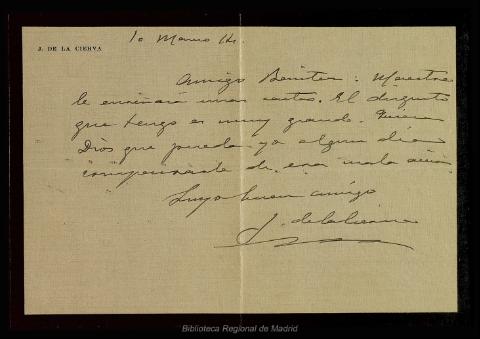 J. DE LA CIERVA
10 Marzo 14.
Amigo Benitez: Maestre
le enviará unas cartas. El disgusto
que tengo es muy grande. Quiera
Dios que pueda yo algun dia
compensarle de esa mala
Suyo buen amigo
J. de la Cierva
Biblioteca Regional de Madrid